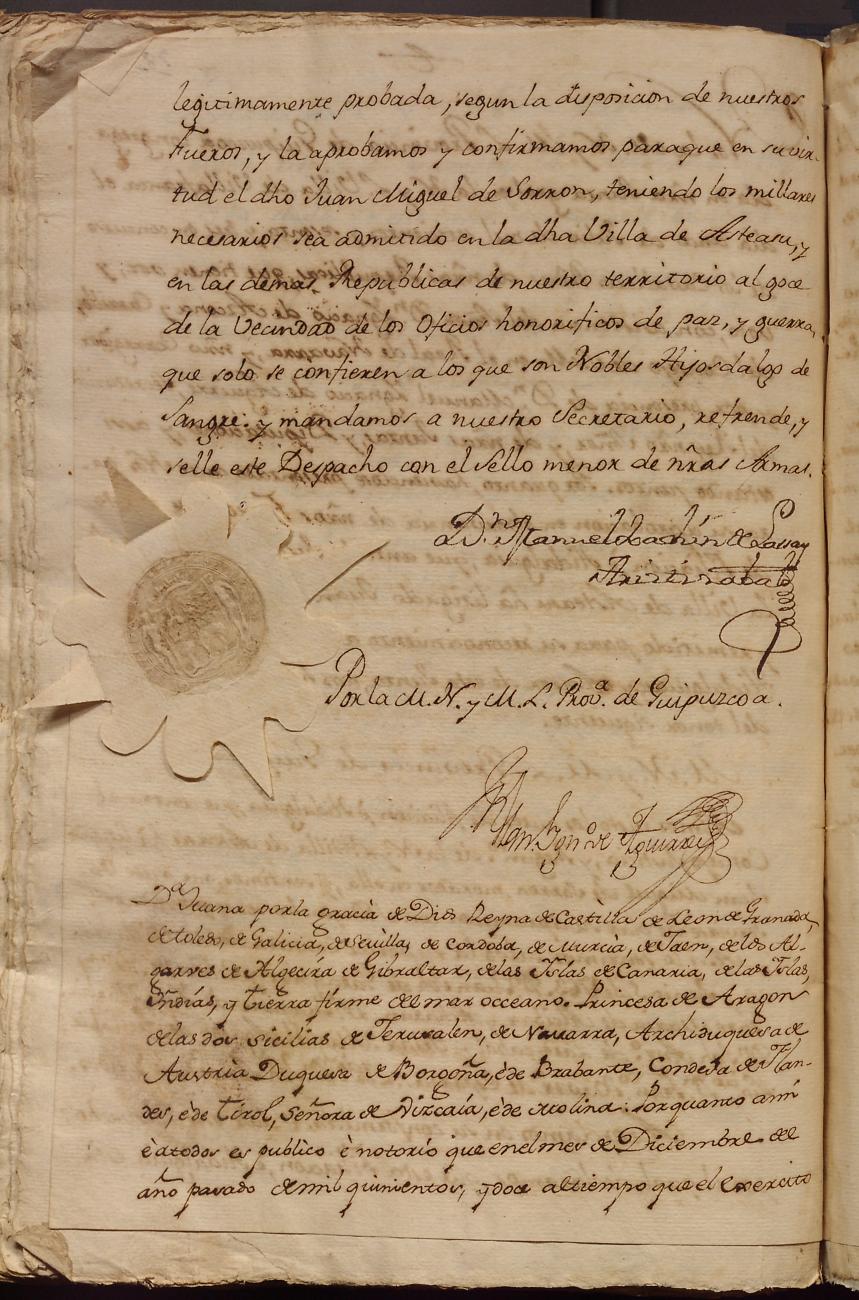 legitimamente probada, segun la disposicion de nuestros
Fueros, y la aprobamos y confirmamos paraque en su vir-
tud el dho Juan Miguel de Sorron, teniendo los millares
necesarios sea admitido en la dha Villa de Asteasu, y
en las demas Republicas de nuestro territorio al goce
de la Vecindad de los Oficios honorificos de paz, y guerra,
que solo se confieren a los que son Nobles Hijosdalgo de
Sangre: y mandamos a nuestro Secretario, refrende, y
selle este Despacho con el Sello menor de nr̃as Armas.
Dn Manuel Joachin de
Por la M. N. y M. L. Prova. de Guipuzcoa.
Man. Igno. de Aguirre
Da. Juana por la gracia de Dios Reyna de Castilla de Leon de Granada,
de Toledo, de Galicia, de Sevilla, de Cordoba, de Murcia, de Jaen, de los Al-
garves de Algecira de Gibraltar, de las Yslas de Canaria, de las Yslas,
Yndias, y tierra firme del mar occeano. Princesa de Aragon
de las dos Sicilias de Jerusalen, de Navarra, Archiduquesa de
Austria Duquesa de Borgoña, è de Brabante, Condesa de Flan-
des, è de Tirol, Señora de Vizcaia, è de Molina: Por quanto a mi
è a todos es publico è notorio que en el mes de Diciembre del
año pasado de mil quinientos, y doce al tiempo que el Exercito